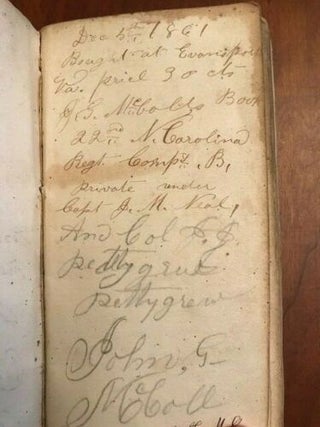 Dec 5th 1861
Bought at Evansport
Va. price 30 cts
J. G. McColls Book
22nd N. Carolina
Regt. Compy. B,
private under
Capt J. M. Neal,
And Col J. J.
pettygrue
pettygrew
John. G
McColl